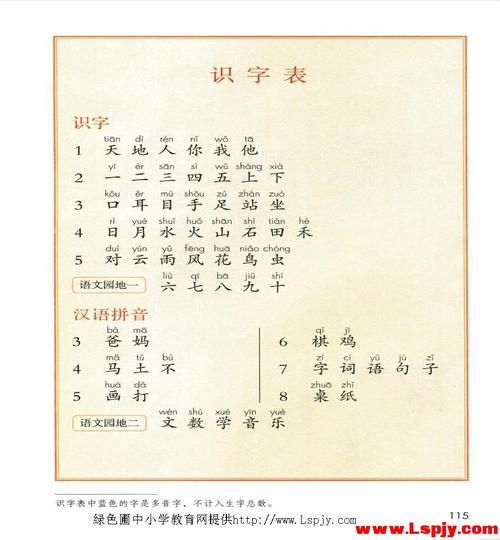 识字表
识字
tiān dì rén nǐ wǒ tā
1 天地人你我他
yī èr sān sì wǔ shàng xià
2 一二三四五上下
kǒu ěr mù shǒu zú zhàn zuò
3 口耳目手足站坐
rì yuè shuǐ huǒ shān shí tián hé
4 日月水火山石田禾
duì yún yǔ fēng huā niǎo chóng
5 对云雨风花鸟虫
liù qī bā jiǔ shí
语文园地一 六七八九十
汉语拼音
bà mā
3 爸妈
mǎ tǔ bù
4 马土不
huà dǎ
5 画打
qí jī
6 棋鸡
zì cí yǔ jù zǐ
7 字词语句子
zhuō zhǐ
8 桌纸
wén shù xué yīn yuè
语文园地二 文数学音乐
识字表中蓝色的字是多音字，不计入生字总数。
115
绿色圃中小学教育网提供http://www.Lspjy.com
www.Lspjy.com